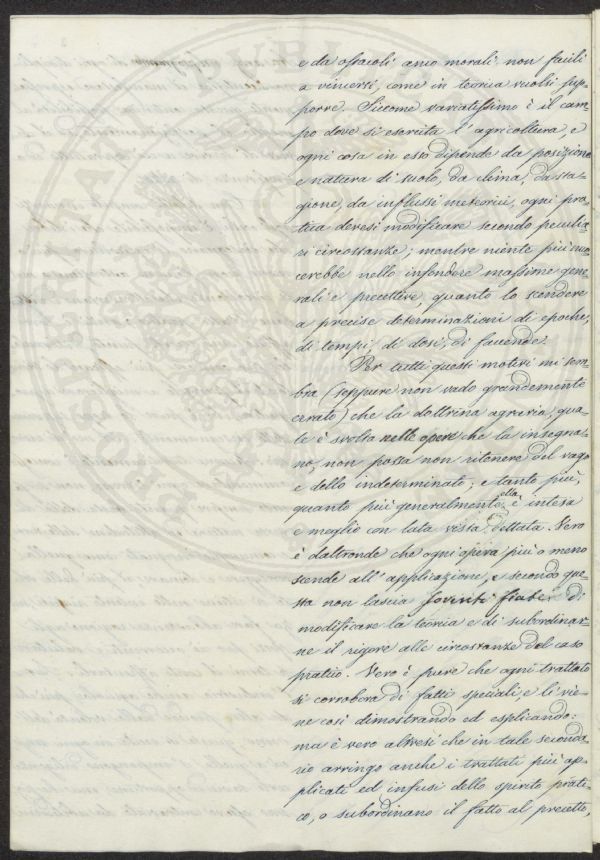 e da ostacoli anco morali non facili
a vincersi, come in teorica vuolsi sup-
porre. Siccome variatissimo è il cam-
po dove si esercita l'agricoltura, e
ogni cosa in esso dipende da posizione
e natura di suolo, da clima, da sta-
gione, da influssi meteorici, ogni pra-
tica devesi modificare secondo peculia-
ri circostanze; mentre niente più nuo-
cerebbe nello infondere massime gene-
rali e precettive quanto lo scendere
a precise determinazioni di epoche,
di tempi, di dosi, di faccende.
Per tutti questi motivi mi sem-
bra (seppure non vado grandemente
errato) che la dottrina agraria, qua-
le è svolta nelle opere che la insegna-
no, non possa non ritenere del vago
e dello indeterminato; e tanto più,
quanto più generalmente ella è intesa
e meglio con lata vista dettata. Vero
è daltronde che ogni opera più o meno
scende all'applicazione, e secondo que-
sta non lascia di
modificare la teoria e di subordinar-
ne il rigore alle circostanze del caso
pratico. Vero è pure che ogni trattato
si corrobora di fatti speciali, e li vie-
ne così dimostrando ed esplicando:
ma è vero altresì che in tale seconda-
rio arringo anche i trattati più ap-
plicati ed infusi dello spirito prati-
co, o subordinano il fatto al precetto,